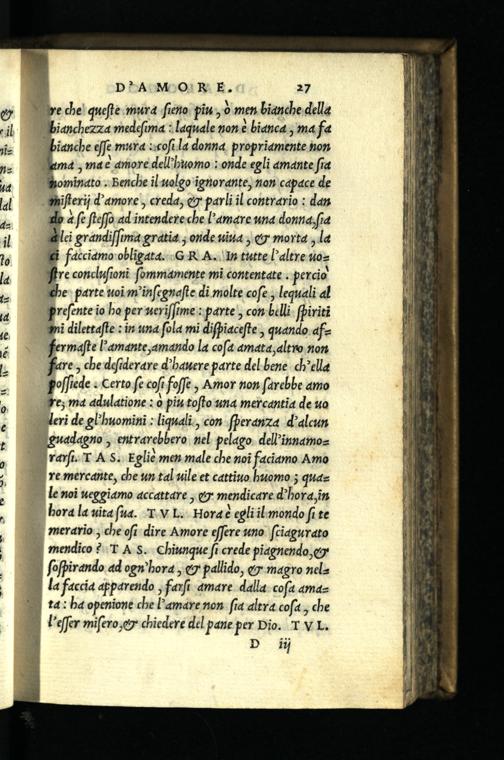 D'AMORE. 27
re che queste mura sieno piu, ò men bianche della
bianchezza medesima: laquale non è bianca, ma fa
bianche esse mura: cosi la donna propriamente non
ama, ma è amore dell'huomo: onde egli amante sia
nominato. Benche il uolgo ignorante, non capace de
misterij d'amore, creda, & parli il contrario: dan
do à se stesso ad intendere che l'amare una donna, sia
à lei grandissima gratia, onde uiua, & morta, la
ci facciamo obligata. GRA. In tutte l'altre uo=
stre conclusioni sommamente mi contentate. perciò
che parte uoi m'insegnaste di molte cose, lequali al
presente io ho per uerissime: parte, con belli spiriti
mi dilettaste: in una sola mi dispiaceste, quando af=
fermaste l'amante, amando la cosa amata, altro non
fare, che desiderare d'hauere parte del bene ch'ella
possiede. Certo se cosi fosse, Amor non sarebbe amo
re, ma adulatione: ò piu tosto una mercantia de uo
leri de gl'huomini: liquali, con speranza d'alcun
guadagno, entrarebbero nel pelago dell'innamo=
rarsi. TAS. Egliè men male che noi faciamo Amo
re mercante, che un tal uile et cattiuo huomo; qua=
le noi ueggiamo accattare, & mendicare d'hora, in
hora la uita sua. TVL. Hora è egli il mondo si te
merario, che osi dire Amore essere uno sciagurato
mendico? TAS. Chiunque si crede piagnendo, &
sospirando ad ogn'hora, & pallido, & magro nel=
la faccia apparendo, farsi amare dalla cosa ama=
ta: ha openione che l'amare non sia altra cosa, che
l'esser misero, & chiedere del pane per Dio. TVL.
D iij